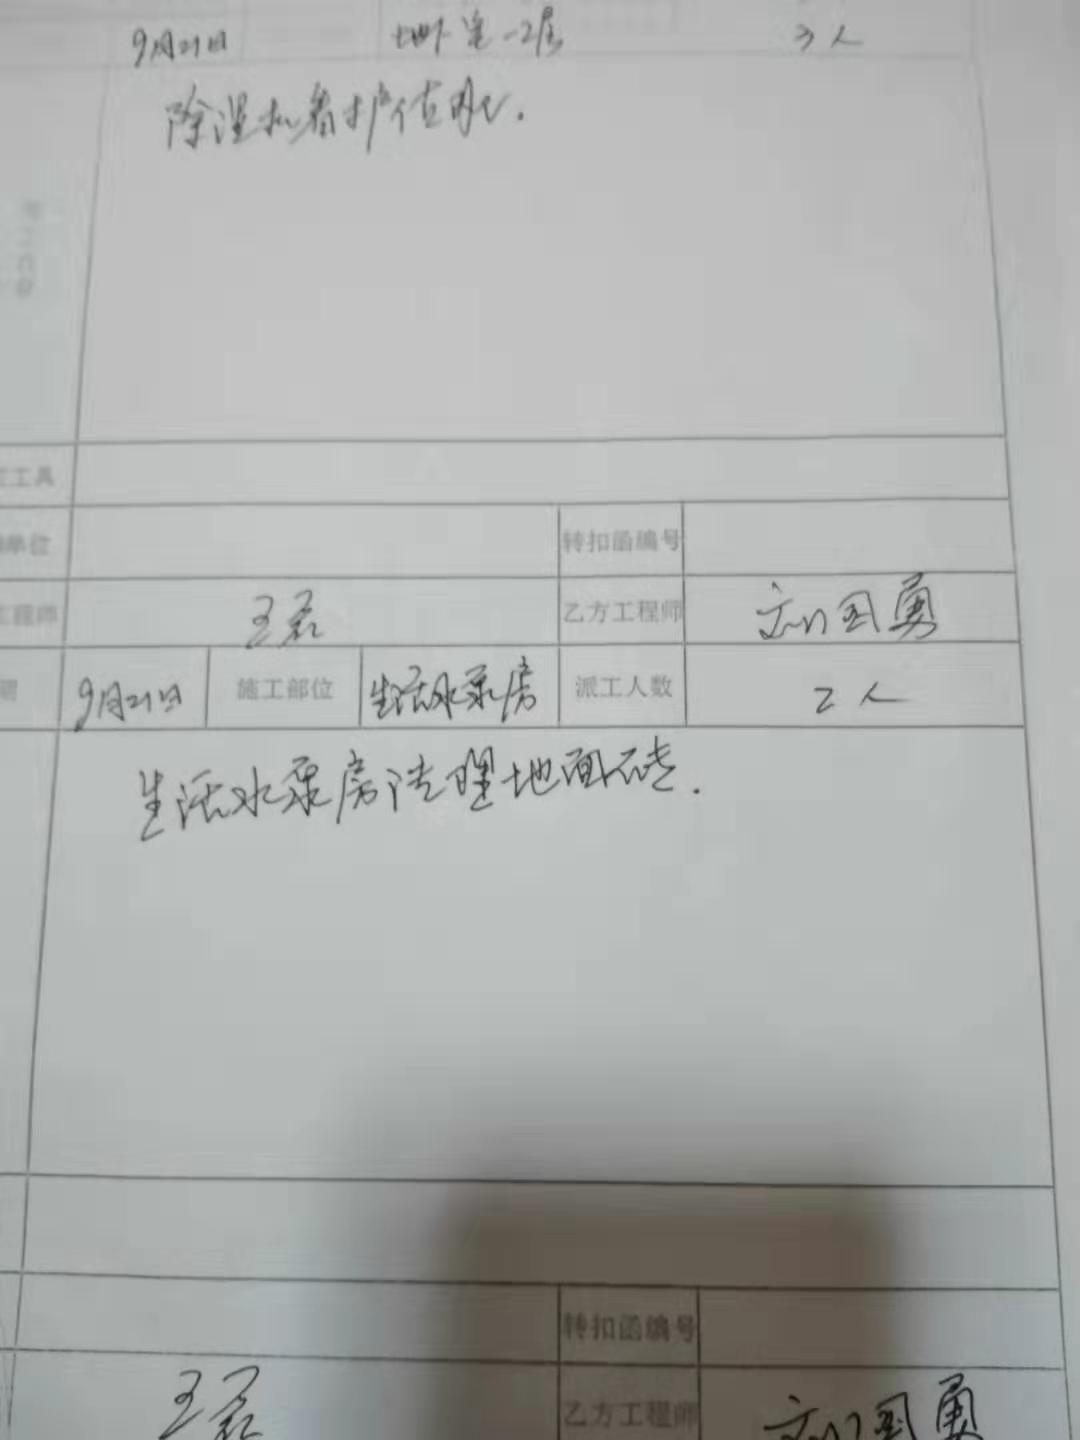 9月21日 地下室-2层 3人
除湿机看护值班.
工具
单位 转扣函编号
工程师 王磊 乙方工程师 刘国勇
9月21日 施工部位 生活水泵房 派工人数 2人
生活水泵房清理地面砖.
转扣函编号
王磊 乙方工程师 刘国勇